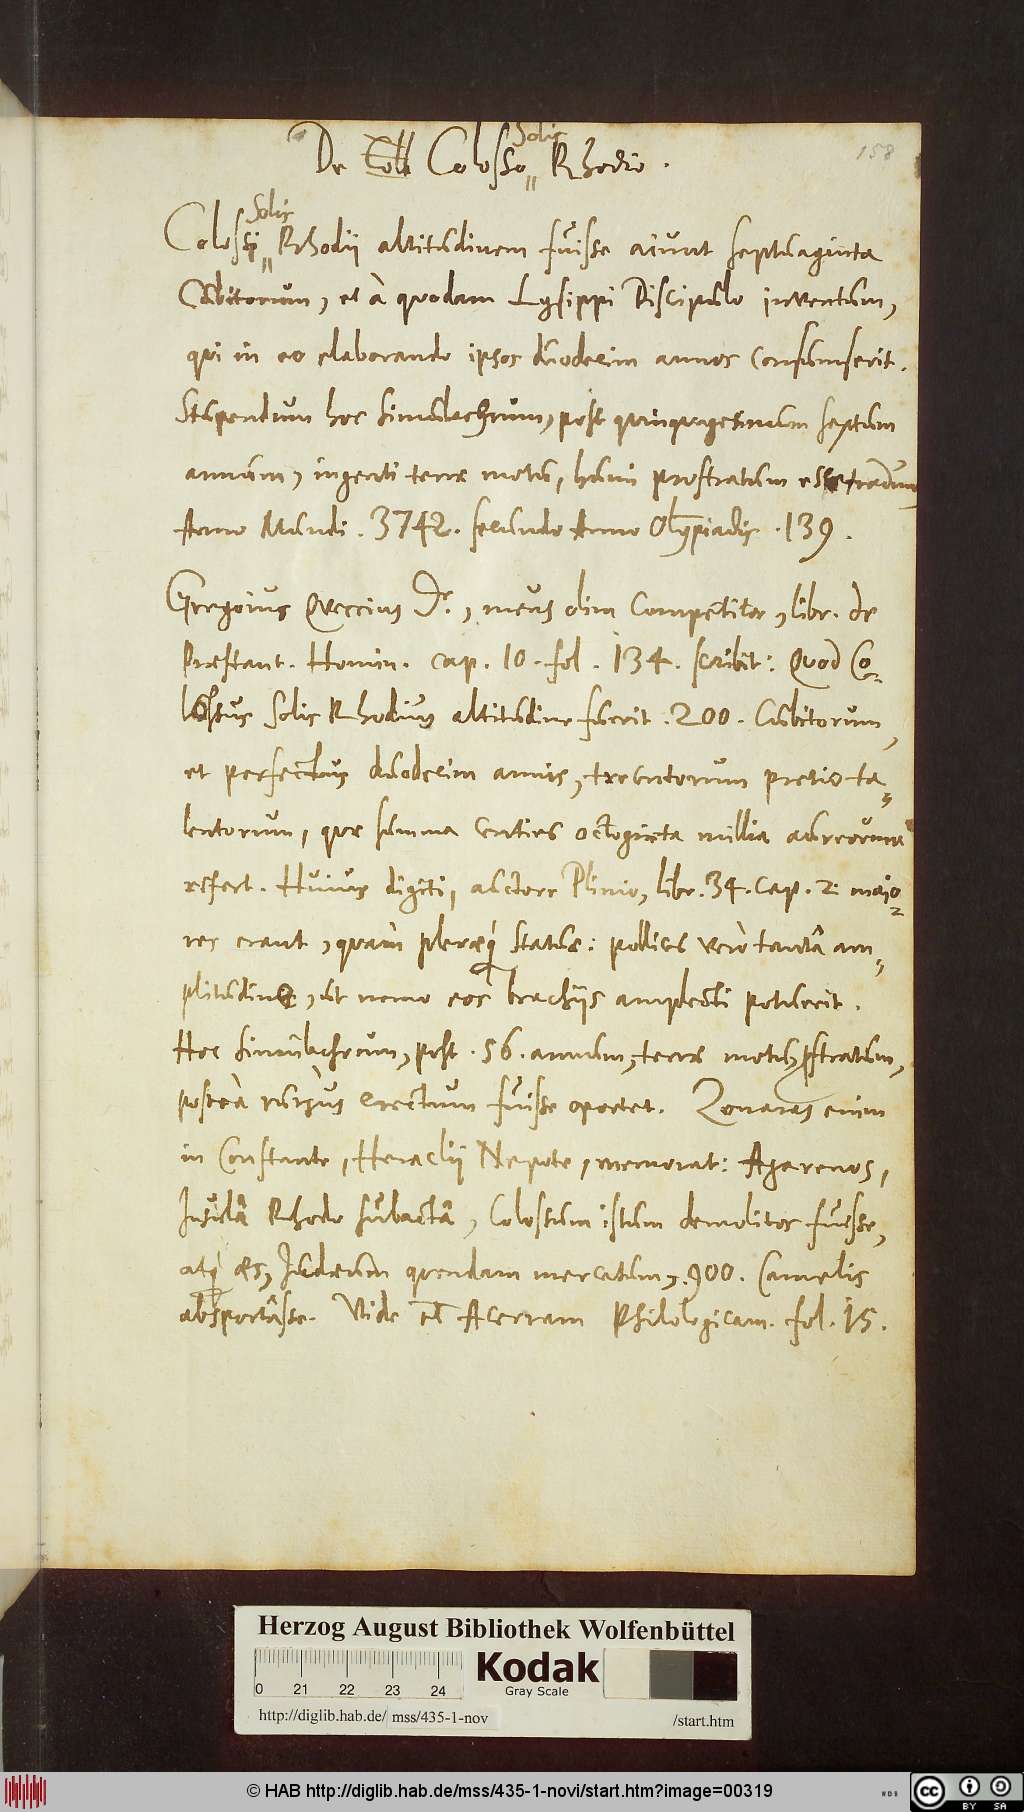 158
De Coll Colosso Solis Rhodio.
Colossi Solis Rhodii altitudinem fuisse aiunt septuaginta
Cubitorum, et à quodam Lysippi Discipulo inventum,
qui in eo elaborando ipsos duodecim annos consumserit.
Stupendum hoc simulachrum, post quinquagesimum septum
annum, ingenti terræ motu, humi prostratum esse
Anno Mundi . 3742. secundo Anno Olympiadis . 139.
Gregorius Queccius Dr., meus olim Competitor, libr. de
Præstant. Homin. cap. 10. fol. 134. scribit: Quod Co-
lossus Solis Rhodius altitudine fuerit . 200. Cubitorum,
et perfectus duodecim annis, trecentorum pretio ta-
lentorum, quæ summa centies octoginta millia aureorum
refert. Huius digiti, auctore Plinio, libr. 34. cap. 2. maio-
res erant, quàm pleræq; statuæ: pollices verò tantâ am-
plitudine, ut nemo eos brachijs amplecti potuerit.
Hoc simulachrum, post . 56. annum, terræ motu, pstratum,
posteà rursus erectum fuisse oportet. Zonaras enim
in Constante, Heraclij Nepote, memorat: Agarenos,
Insulâ Rhodo subactâ, Colossum istum demolitos fuisse,
atq; æs, Judæum quendam mercatum, 900. Camelis
absportâsse. Vide et Acerram Philologicam. fol. 15.
Herzog August Bibliothek Wolfenbüttel
Kodak
Gray Scale
0 21 22 23 24
http://diglib.hab.de/ mss/435-1-nov /start.htm
© HAB http://diglib.hab.de/mss/435-1-novi/start.htm?image=00319
WDB
cc BY SA